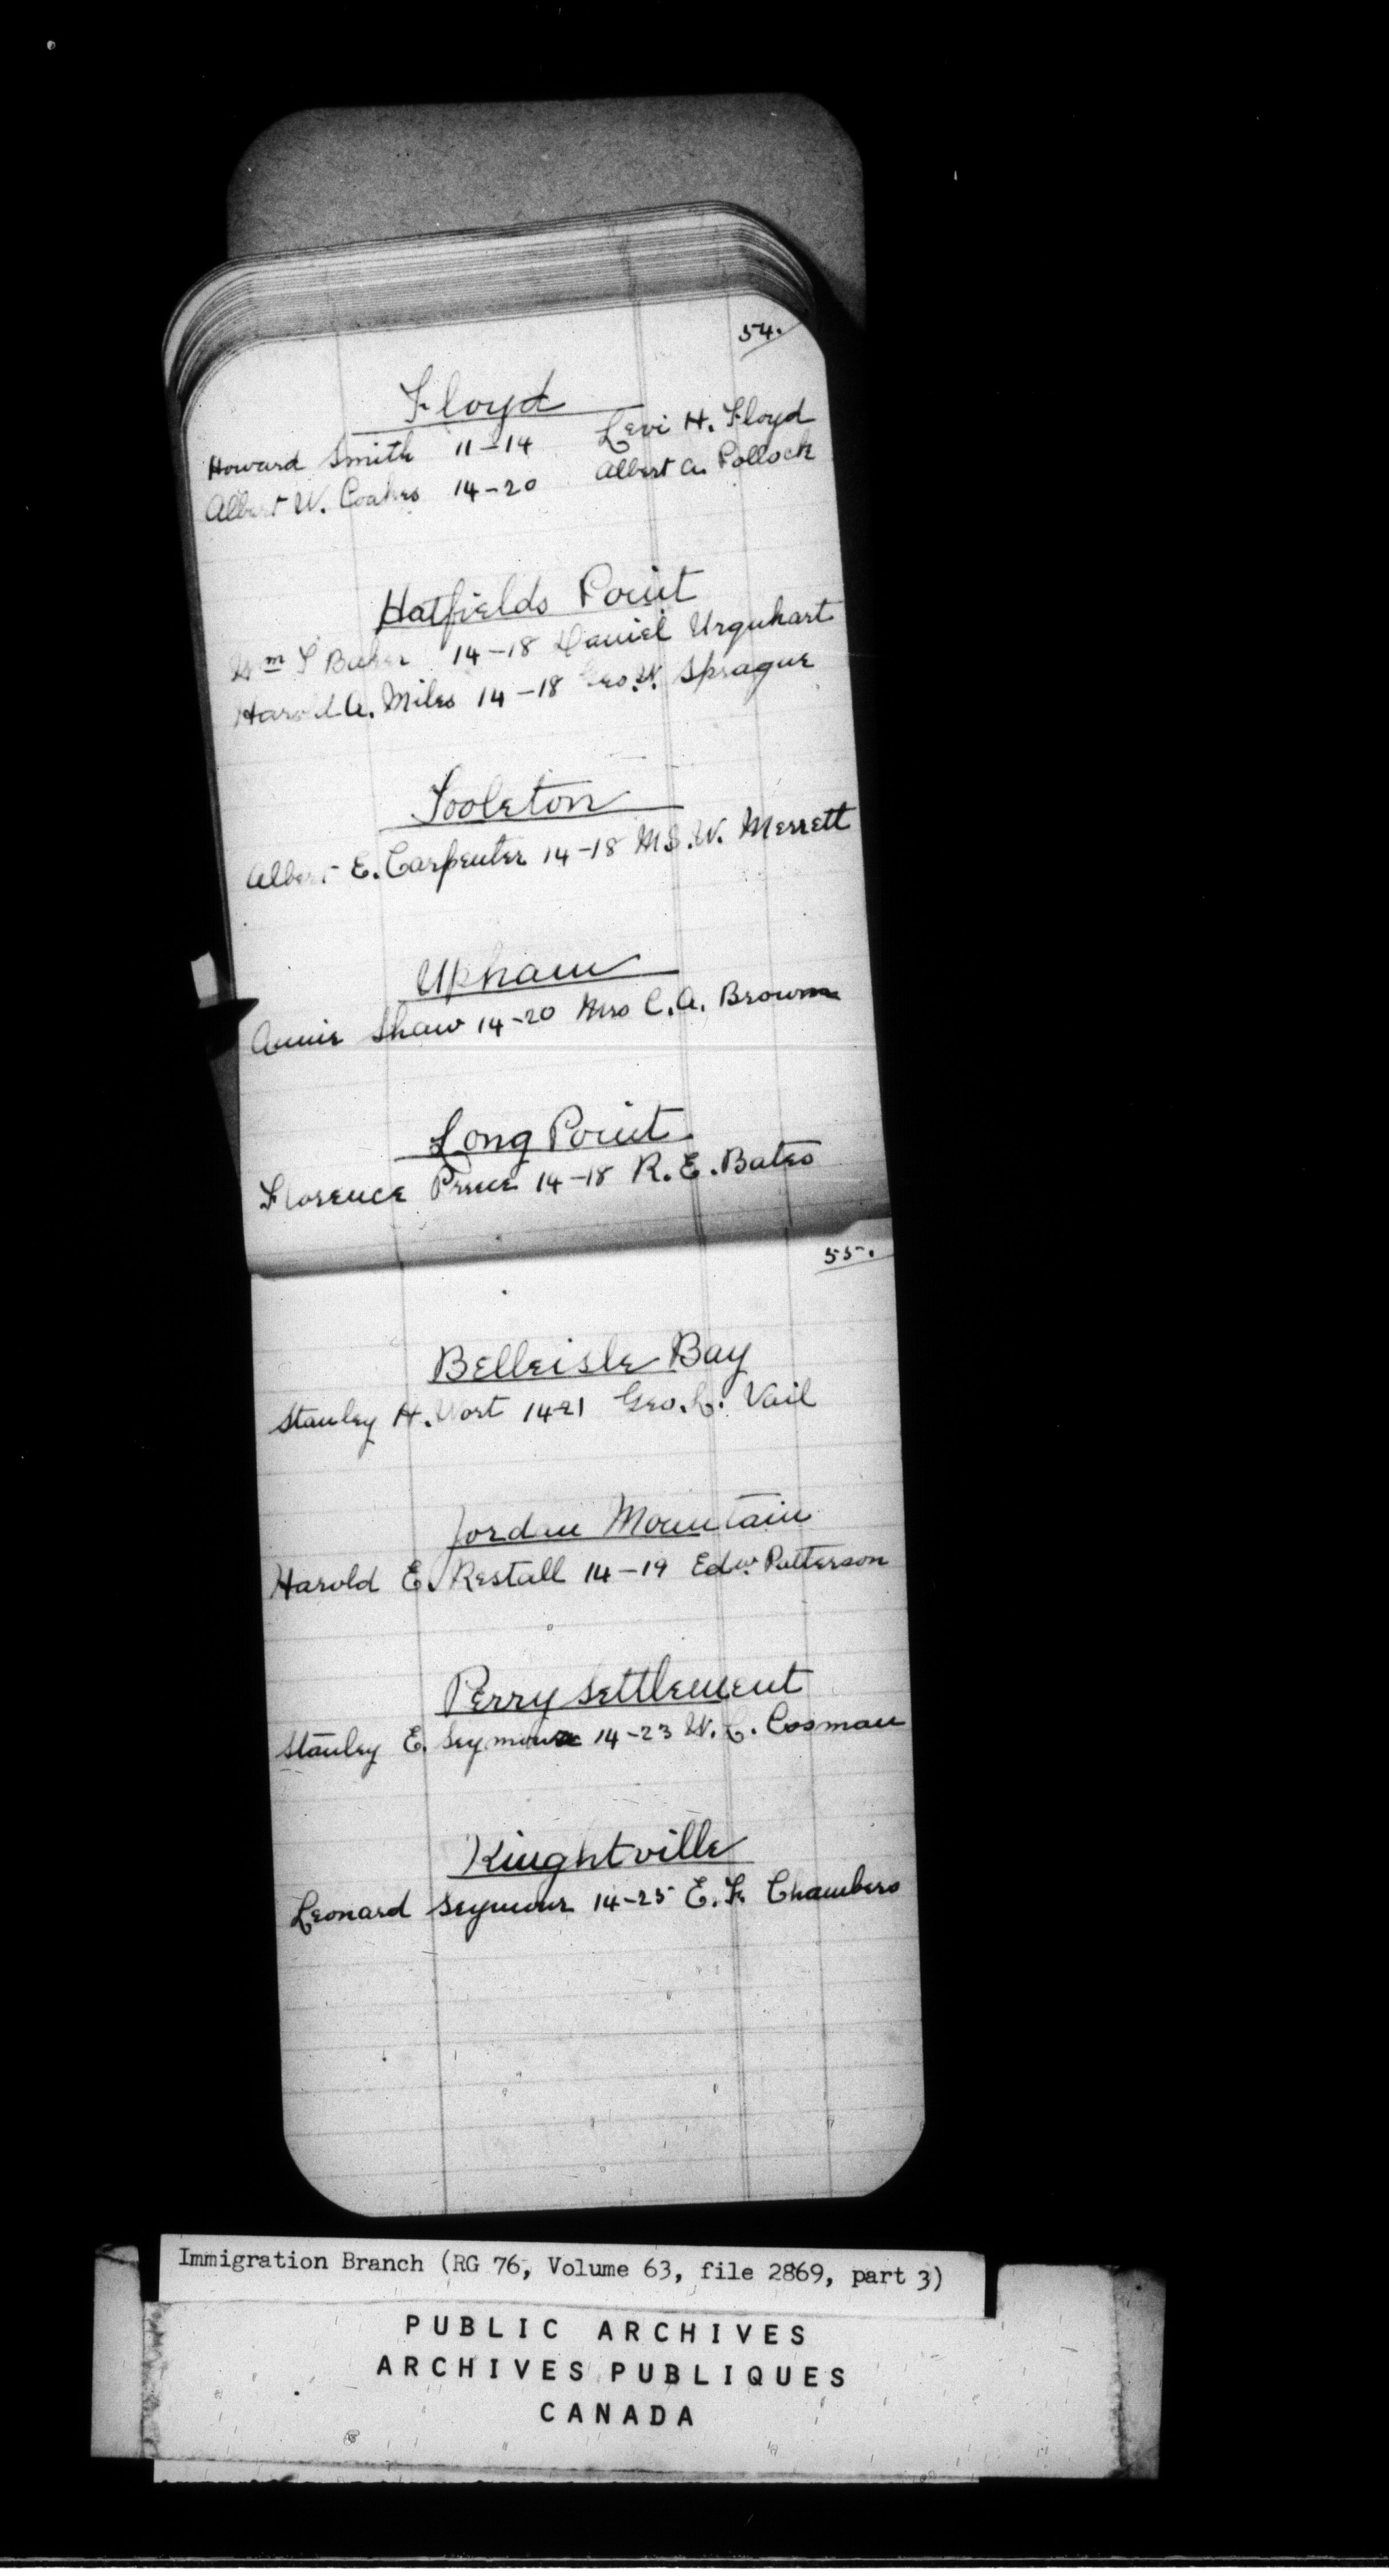 54.
Floyd
Howard Smith 11-14 Levi H. Floyd
Albert W. Coakes 14-20 Albert A. Pollock
Hatfields Point
Wm Baker 14-18 Daniel Urquhart
Harold A. Miles 14-18 Geo. W. Sprague
Tooleton
Albert E. Carpenter 14-18 W. Merrett
Upham
Annie Shaw 14-20 Mrs C. A. Brown
Long Point
Florence 14-18 R. E. Bates
55.
Belleisle Bay
Stanley H. 14-21 Geo. Vail
Jordan Mountain
Harold E. Restall 14-19 Edw. Patterson
Perry Settlement
Stanley E. Seymour 14-23 W. C. Cosman
Kinghtville
Leonard Seymour 14-25 E. F. Chambers
Immigration Branch (RG 76, Volume 63, file 2869, part 3)
PUBLIC ARCHIVES
ARCHIVES PUBLIQUES
CANADA